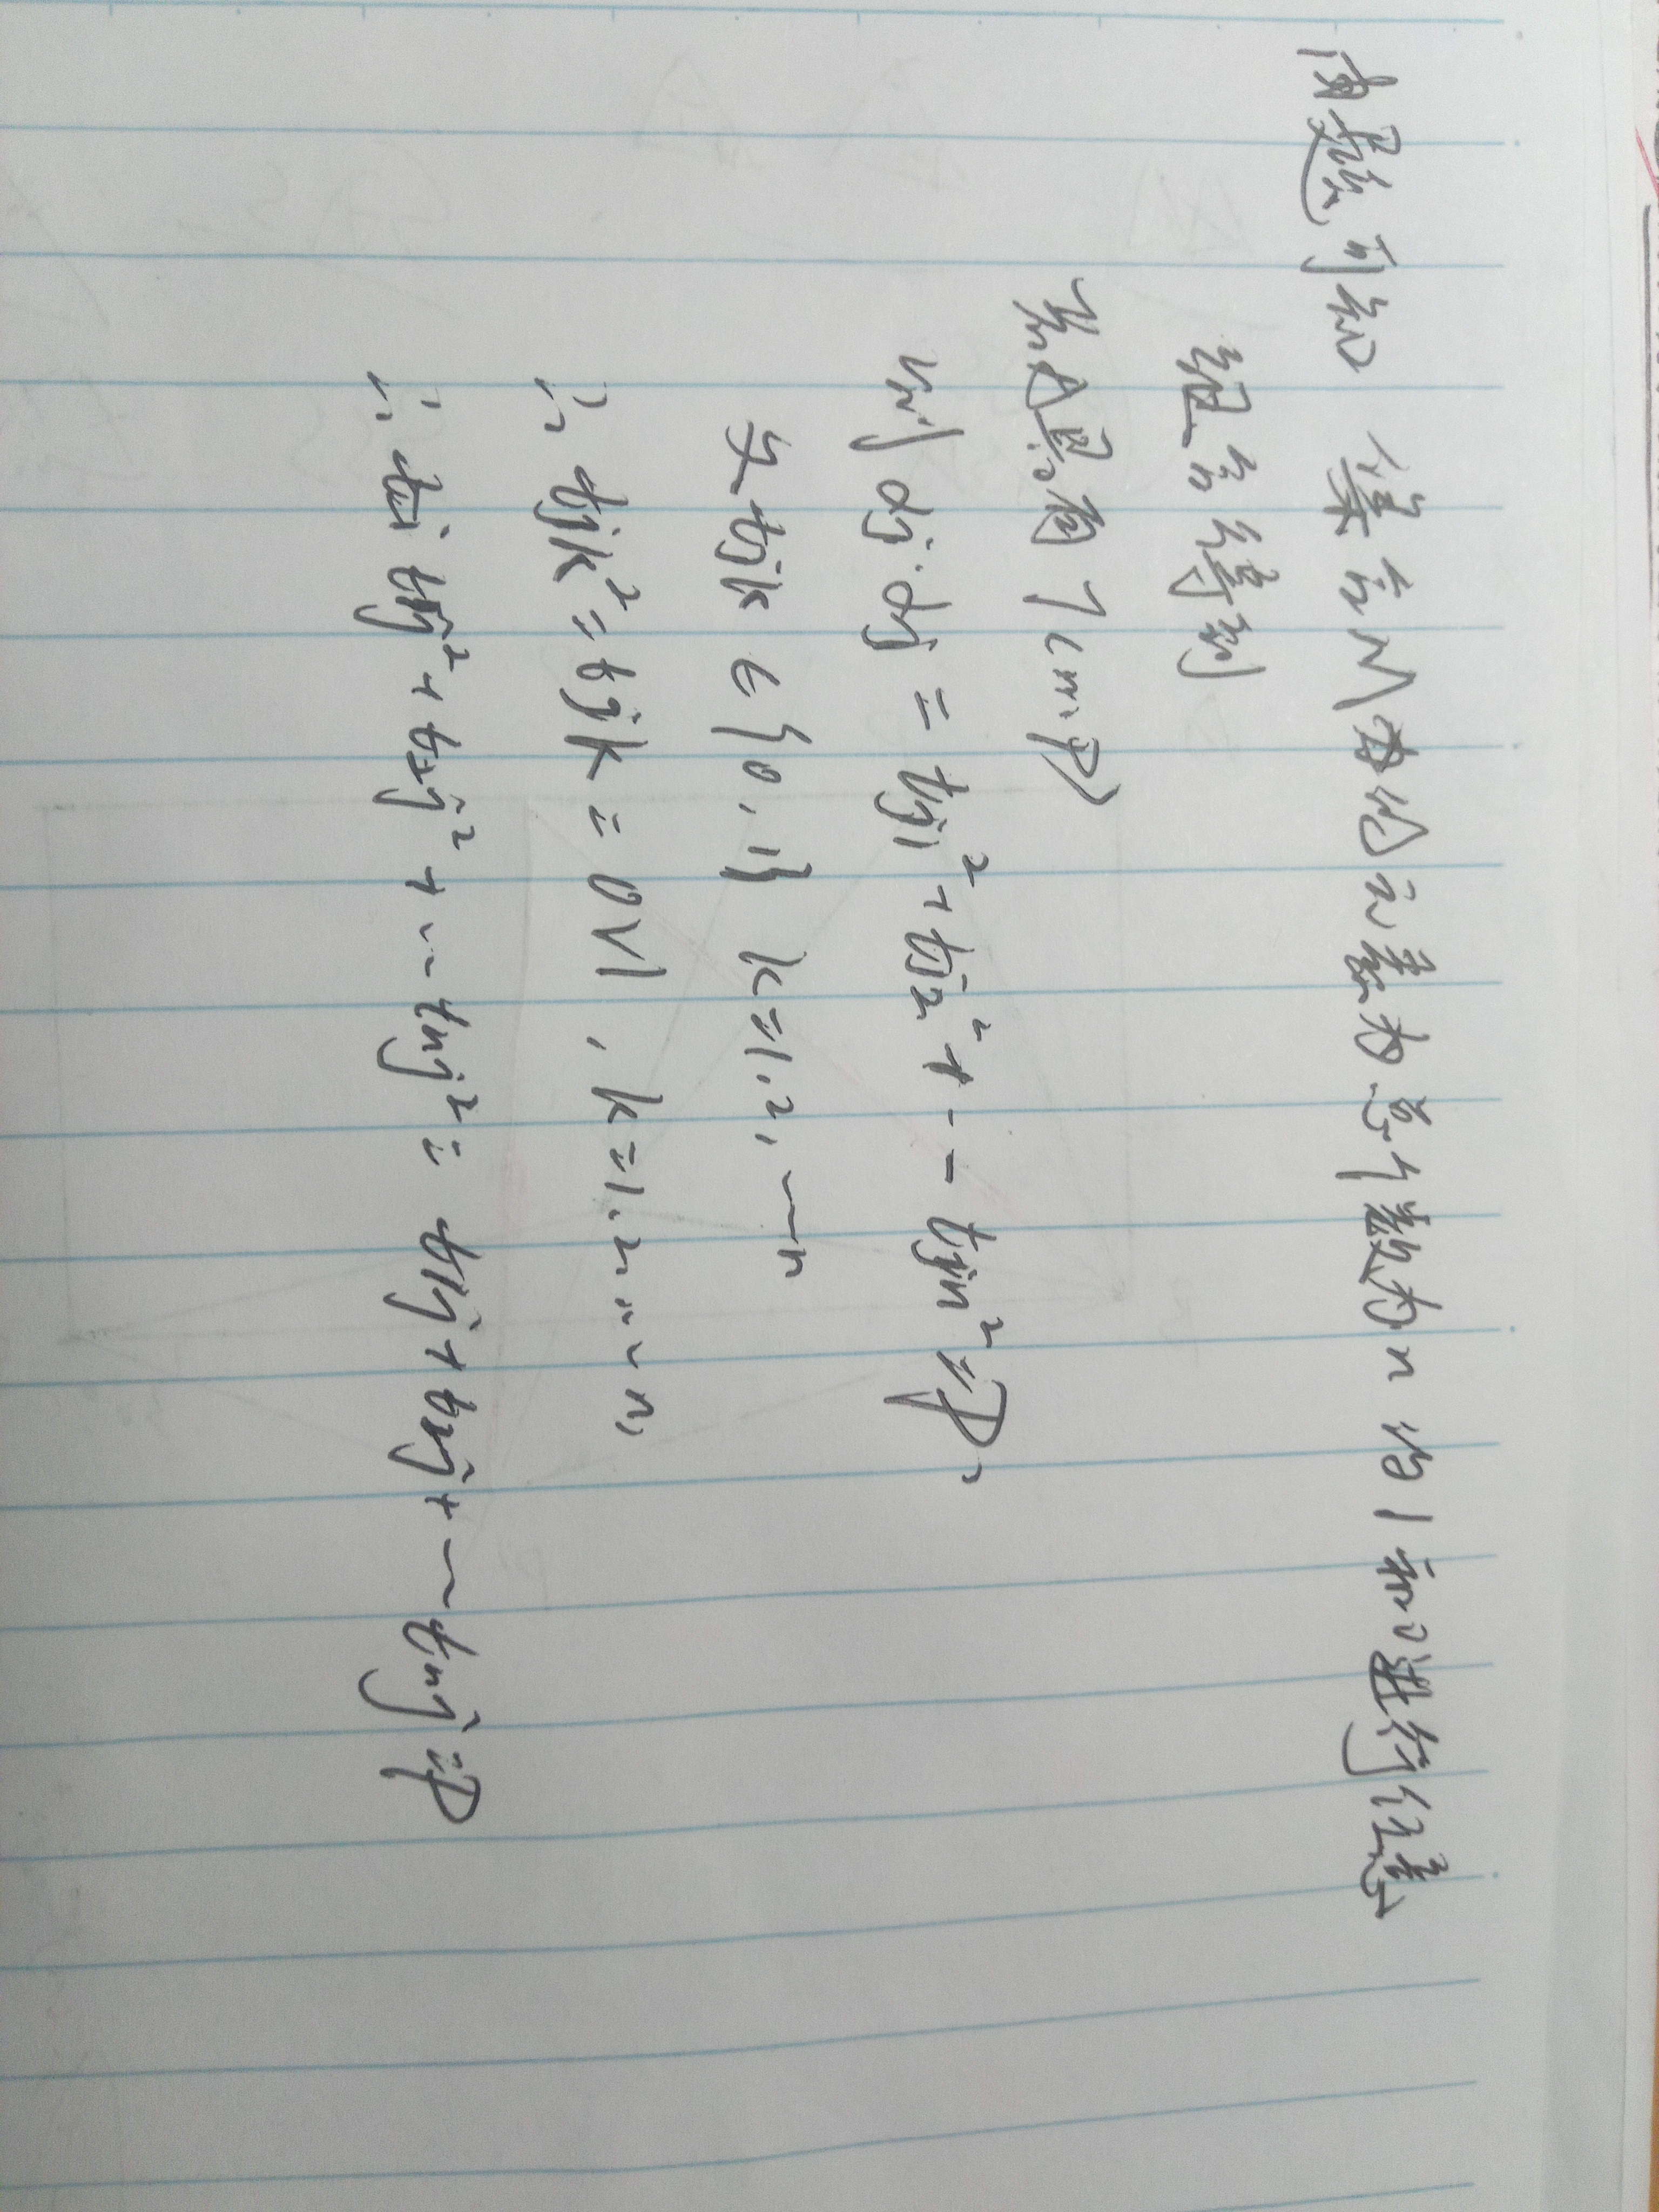 由题可知 集合M中的元素为总个数为n 的1和0进行任意
组合得到
若A具有T(m,p)
则 αj·αj = tj1²+tj2²+-- tjn²=P,
又 tjk ∈ {0,1} k=1,2,…n
∴ tjk²=tjk = 0∨1, k=1,2……n,
∴ t1j²+t2j²+…tnj²= t1j+t2j+…tnj=P